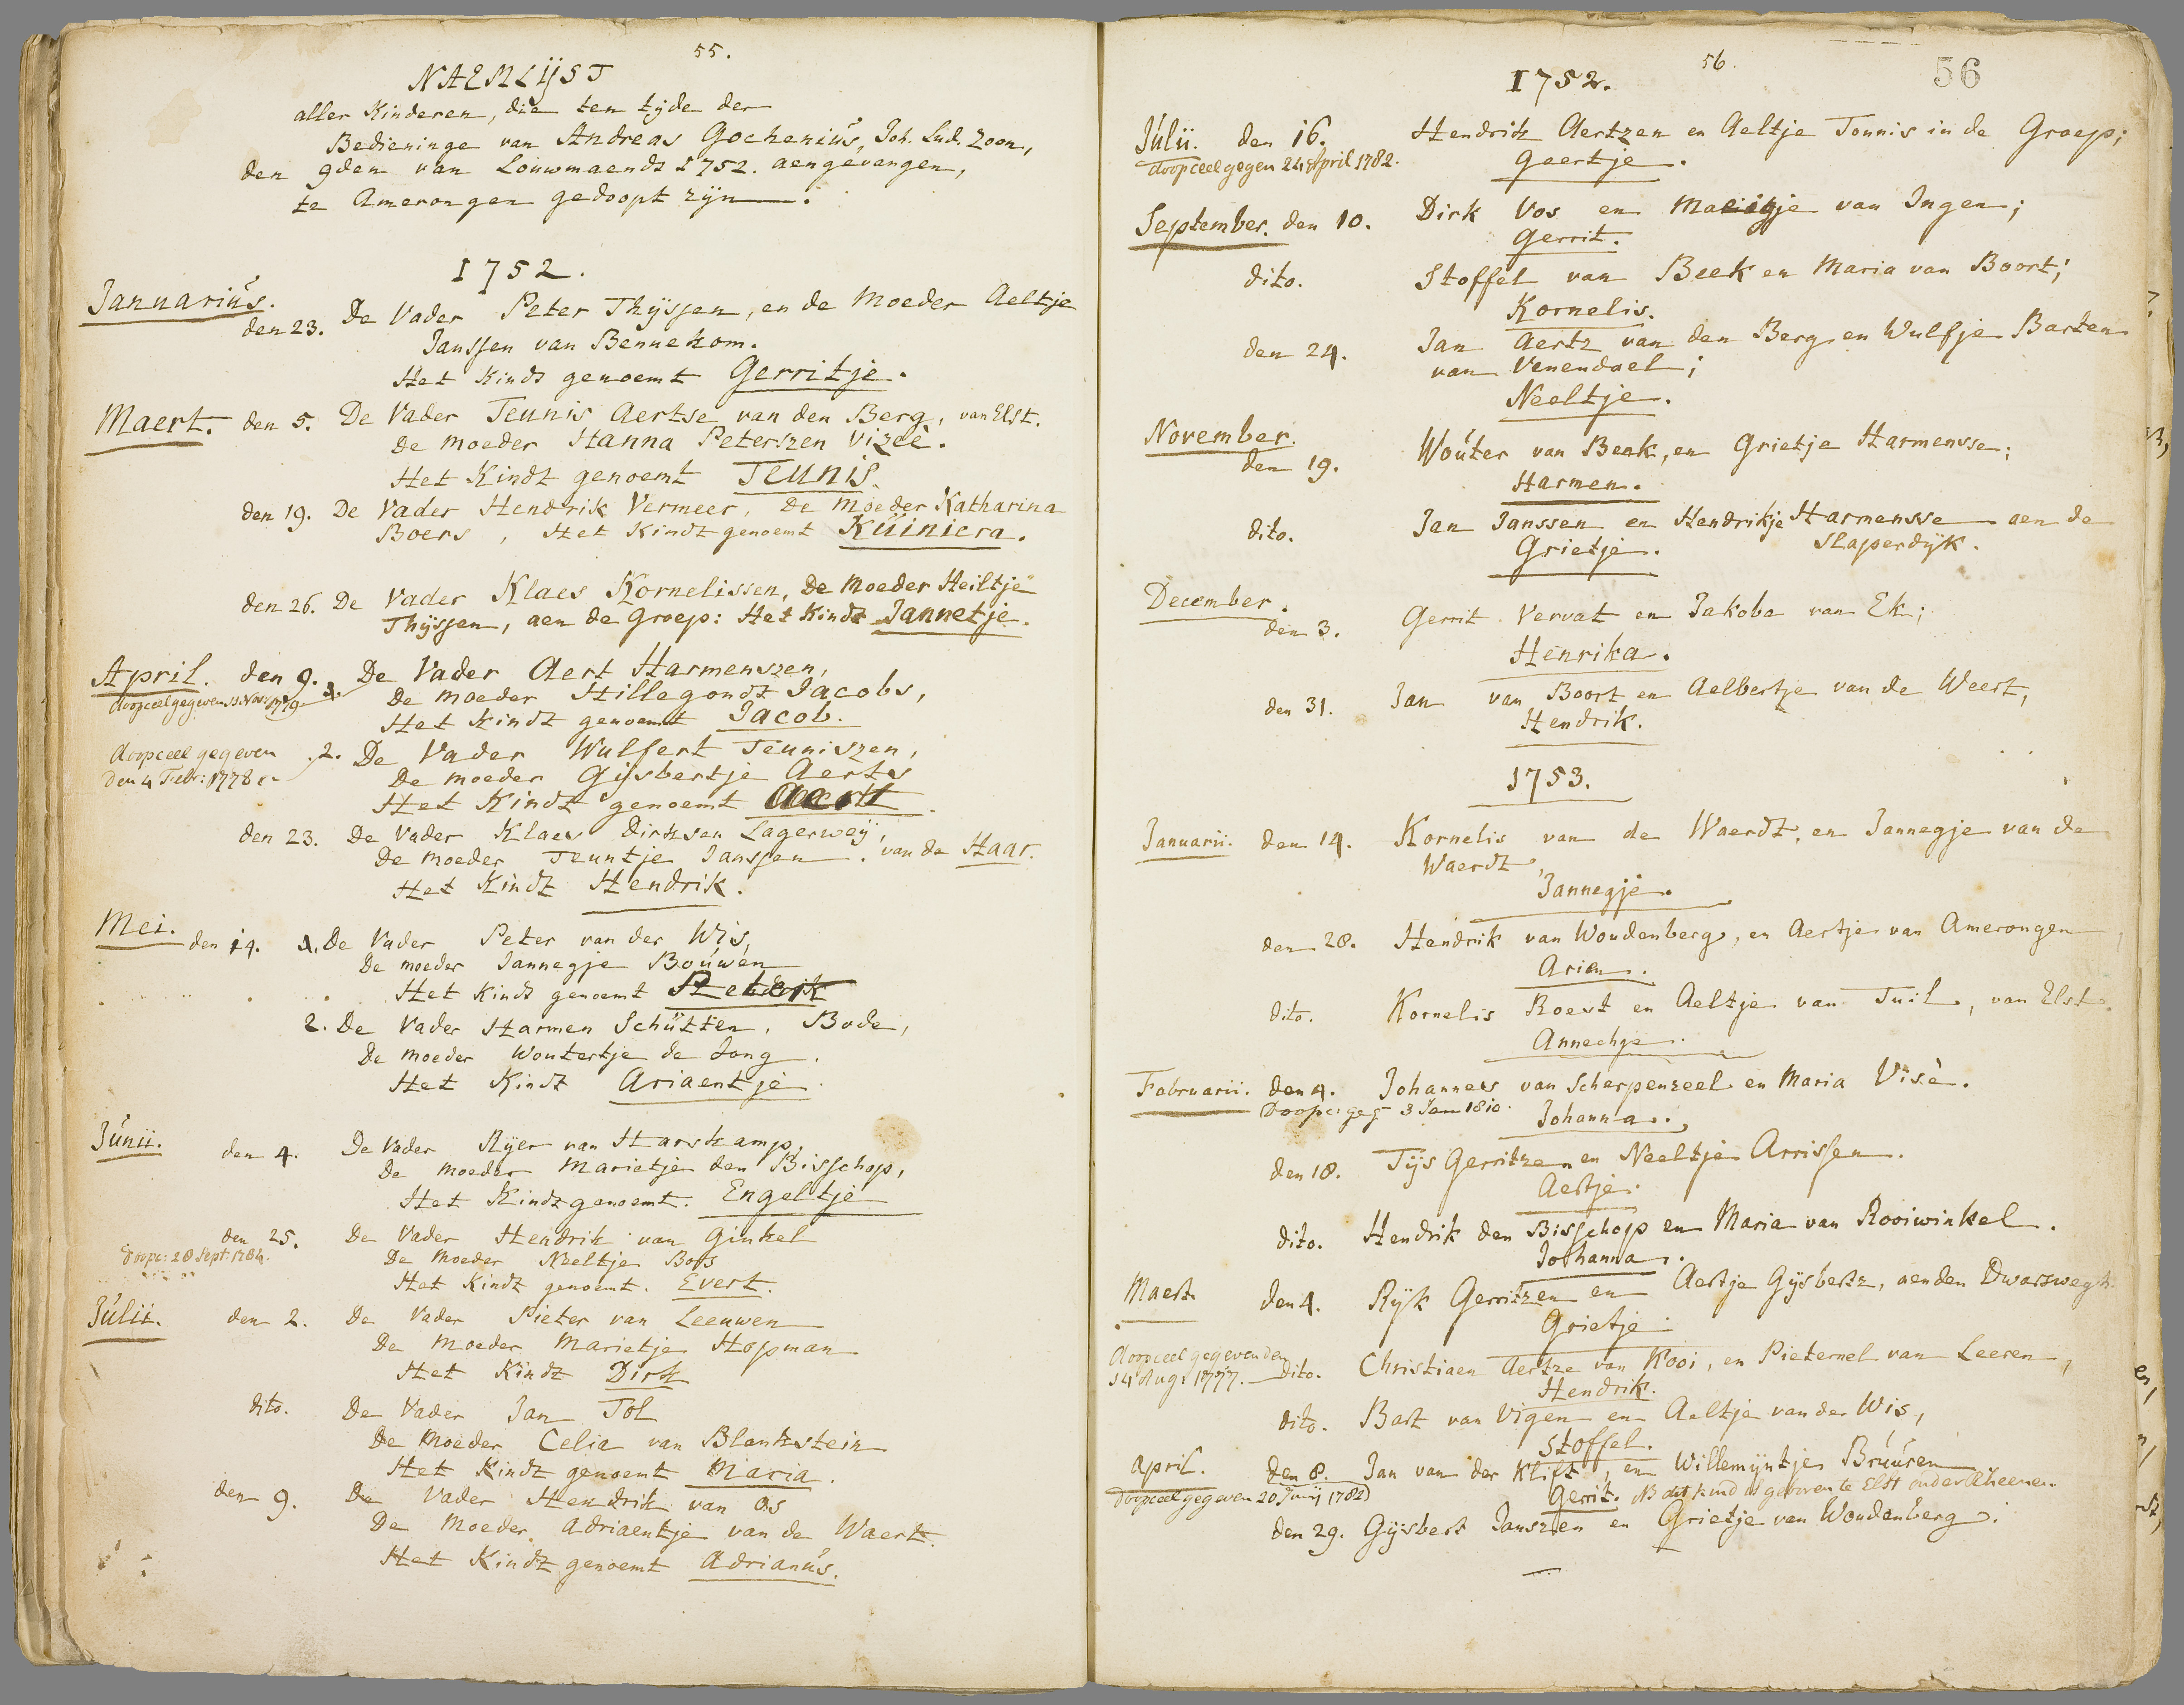 55.
NAEMLYST
aller Kinderen, die ten tyde der
Bedieninge van Andreas Gochenius, Joh. Lud. Zoon,
den 9den van Louwmaendt 1752. aengevangen,
te Amerongen gedoopt zyn.
1752.
Januarius.
den 23. De Vader Peter Thyssen, en de Moeder Aeltje
Janssen van Bennekom.
Het Kindt genoemt Gerritje.
Maert. den 5. De Vader Teunis Aertse van den Berg, van Elst.
De moeder Hanna Peterszen Vizeè.
Het Kindt genoemt Teunis.
den 19. De Vader Hendrik Vermeer, De Moeder Katharina
Boers, Het Kindt genoemt Küiniera.
den 26. De Vader Klaes Kornelissen, De Moeder Heiltje
Thyssen, aen de Groep: Het Kindt Jannetje.
April. den 9. 1. De Vader Aert Harmenszen,
doopceel gegeven 13 Nov: 1779
De moeder Hillegondt Jacobs,
Het Kindt genoemt Jacob.
doopceel gegeven 2. De Vader Wulfert Teuniszen,
den 4 Febr: 1778
De moeder Gijsbertje Aerts
Het Kindt genoemt Aert
den 23. De Vader Klaes Dirksen Lagerweij,
De moeder Teuntje Janssen. van de Haar.
Het Kindt Hendrik.
Mei. den 14. 1. De Vader Peter van der Wis,
De moeder Jannegje Bouwen
Het Kindt genoemt
2. De Vader Harmen Schutten, Bode,
De moeder Woutertje de Jong.
Het Kindt Ariaentje.
Júnii. den 4. De Vader Ryer van Harskamp,
De moeder Marietje den Bisschop,
Het Kindt genoemt. Engeltje
den 25. De Vader Hendrik van Ginkel
Doopc: 28 Sept: 1784.
De Moeder Neeltje Bos
Het Kindt genoemt. Evert.
Júlii. den 2. De Vader Pieter van Leeuwen
De Moeder Marietje Hopman
Het Kindt Dirk
dito. De Vader Jan Tol
De Moeder Celia van Blankstein
Het Kindt genoemt Maria.
den 9. De Vader Hendrik van Os
De Moeder Adriaentje van de Waert.
Het Kindt genoemt Adrianus.
56.
56
1752.
Júlii. den 16. Hendrik Aertzen en Aeltje Tonnis in de Groep;
doopceel gegen 24 April 1782. Geertje.
September. den 10. Dirk Vos en Maeigje van Ingen;
Gerrit.
dito. Stoffel van Beek en Maria van Boort;
Kornelis.
den 24. Jan Aertz van den Berg en Wulfje Barten
van Venendael;
Neeltje.
November.
den 19. Wouter van Beek, en Grietje Harmensse;
Harmen.
dito. Jan Janssen en Hendrikje Harmensse aen de
Grietje. Slaperdyk.
December.
den 3. Gerrit Vervat en Jakoba van Ek;
Henrika.
den 31. Jan van Boort en Aelbertje van de Weert,
Hendrik.
1753.
Januarii. den 14. Kornelis van de Waerdt, en Jannegje van de
Waerdt,
Jannegje.
den 28. Hendrik van Woudenberg, en Aertje van Amerongen,
Arien.
dito. Kornelis Roest en Aeltje van Tuil, van Elst.
Annechje.
Februarii. den 4. Johannes van Scherpenzeel en Maria Visè.
Doopc: geg 3 Jan 1810. Johanna.
den 18. Tijs Gerritzen en Neeltje Arrissen.
Aertje.
dito. Hendrik den Bisschop en Maria van Rooiwinkel.
Johanna.
Maert. den 4. Ryk Gerritzen en Aertje Gysbertz, aen den Dwarswegh.
Grietje.
doopceel gegeven den
14 Aug: 1777. dito. Christiaen Aertze van Kooi, en Pieternel van Leeren,
Hendrik.
dito. Bart van Vigen en Aeltje van der Wis,
Stoffel.
April. den 8. Jan van der Klift, en Willemijntje Bruúren
Doopceel gegeven 20 Junij 1782) Gerrit. NB dit kind is geboren te Elst onder Rheenen.
den 29. Gijsbert Janszen en Grietje van Woudenberg.